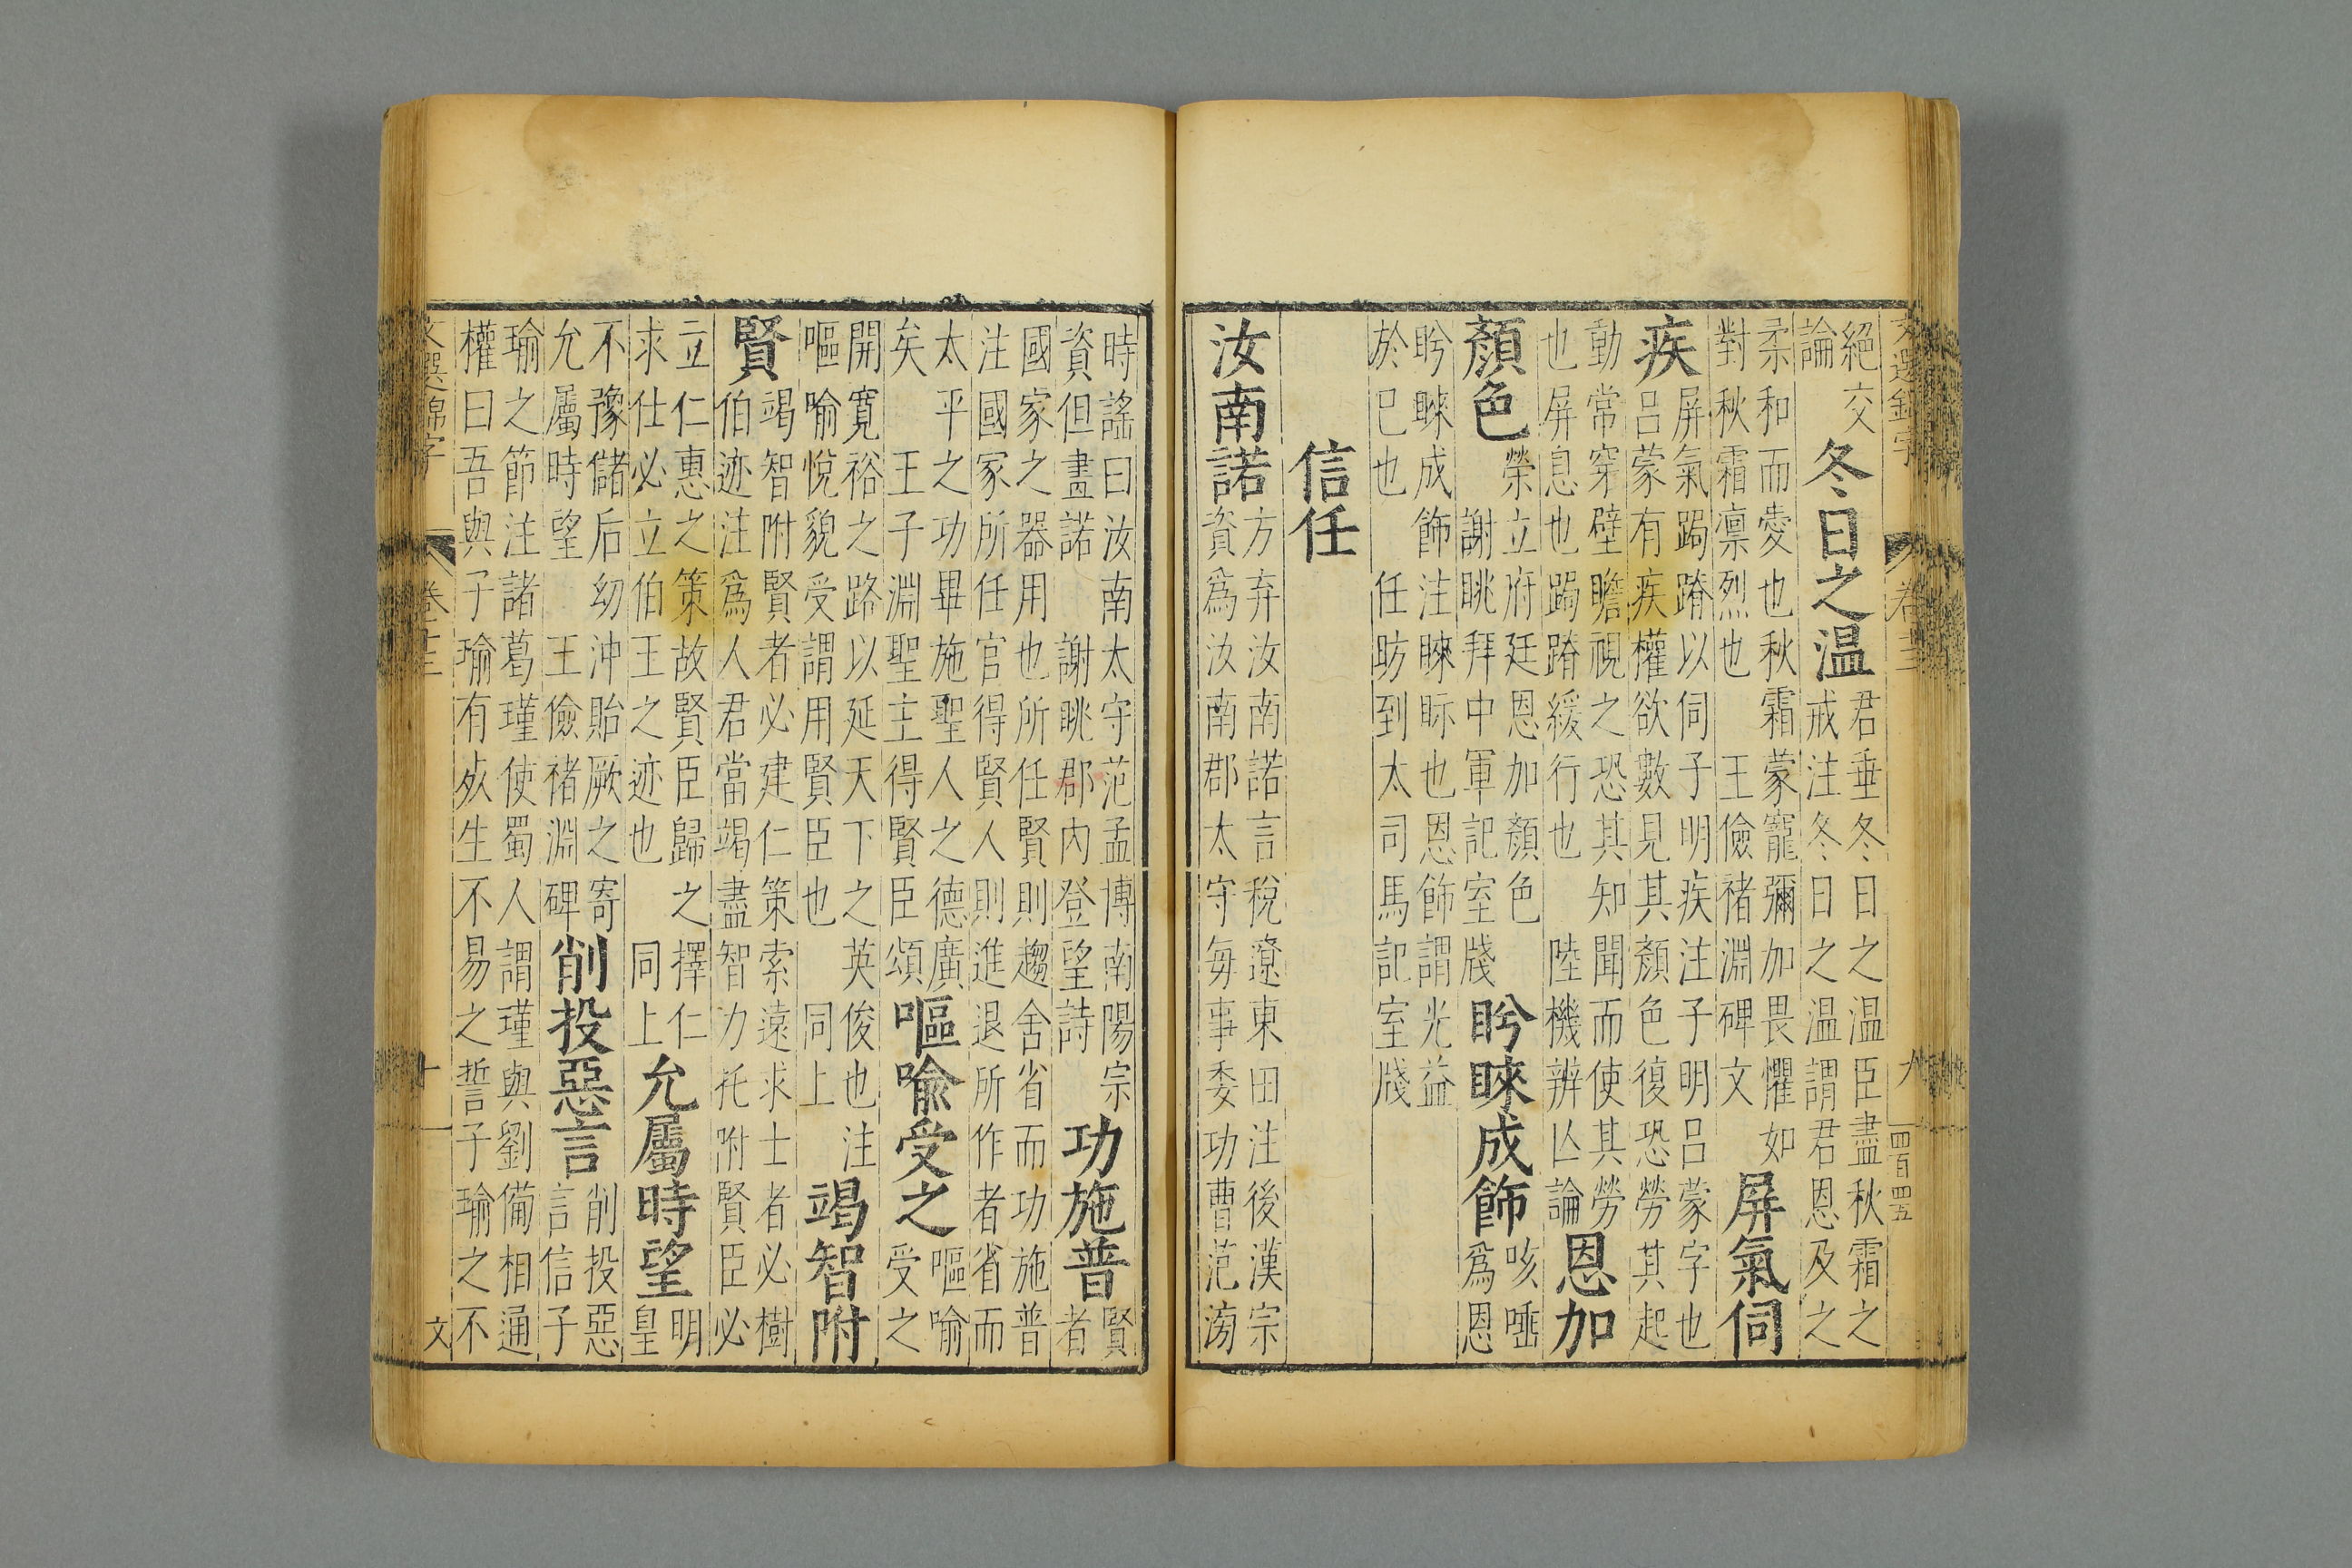 文選錦字 卷十三 九 四百四五
絕交
論
冬日之温
君垂冬日之温臣盡秋霜之
戒注冬日之温謂君恩及之
柔和而愛也秋霜蒙寵彌加畏懼如
對秋霜凛烈也 王儉褚淵碑文
屏氣伺
疾
屏氣跼蹐以伺子明疾注子明吕蒙字也
吕蒙有疾權欲數見其顏色復恐勞其起
動常穿壁瞻視之恐其知聞而使其勞
也屏息也跼蹐緩行也 陸機辨亾論
恩加
顏色
榮立府廷恩加顏色
謝朓拜中軍記室牋
盻睞成飾
咳唾
爲恩
盻睞成飾注睞眎也恩飾謂光益
於巳也 任昉到太司馬記室牋
信任
汝南諾
方弃汝南諾言稅遼東田注後漢宗
資爲汝南郡太守每事委功曹范滂
時謠曰汝南太守范孟博南陽宗
資但畫諾 謝朓郡内登望詩
功施普
賢
者
國家之器用也所任賢則趨舍省而功施普
注國家所任官得賢人則進退所作者省而
太平之功畢施聖人之德廣
矣 王子淵聖主得賢臣頌
嘔喻受之
嘔喻
受之
開寬裕之路以延天下之英俊也注
嘔喻悅貌受謂用賢臣也 同上
竭智附
賢
竭智附賢者必建仁策索遠求士者必樹
伯迹注爲人君當竭盡智力托附賢臣必
立仁惠之策故賢臣歸之擇仁
求仕必立伯王之迹也 同上
允屬時望
明
皇
不豫儲后幼沖貽厥之寄
允屬時望 王儉褚淵碑
削投惡言
削投惡
言信子
瑜之節注諸葛瑾使蜀人謂瑾與劉備相通
權曰吾與子瑜有歿生不易之誓子瑜之不
文選錦字 卷十三 十 文